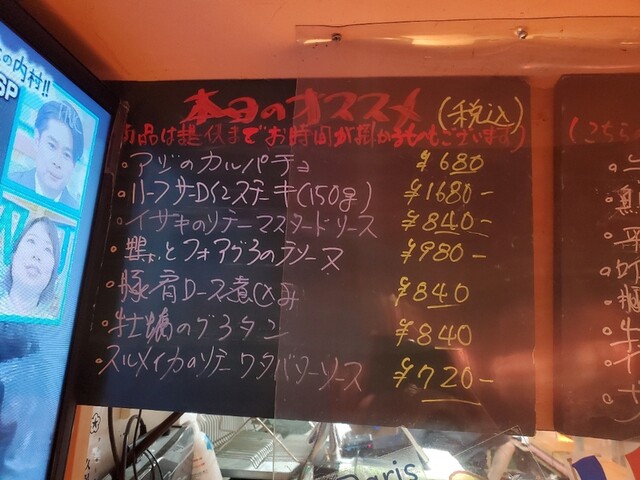 の内村!!
SP
本日のオススメ (税込)
商品は提供までお時間が掛かるものもございます)
・アジのカルパチョ ¥680
・ハーフサーロインステーキ(150g) ¥1680-
・イサキのソテーマスタードソース ¥840-
・鶏レバとフォアグラのテリーヌ ¥980-
・豚肩ロース煮込み ¥840
・牡蠣のグラタン ¥840
・スルメイカのソテー ワタバターソース ¥720-
(こちら
Paris